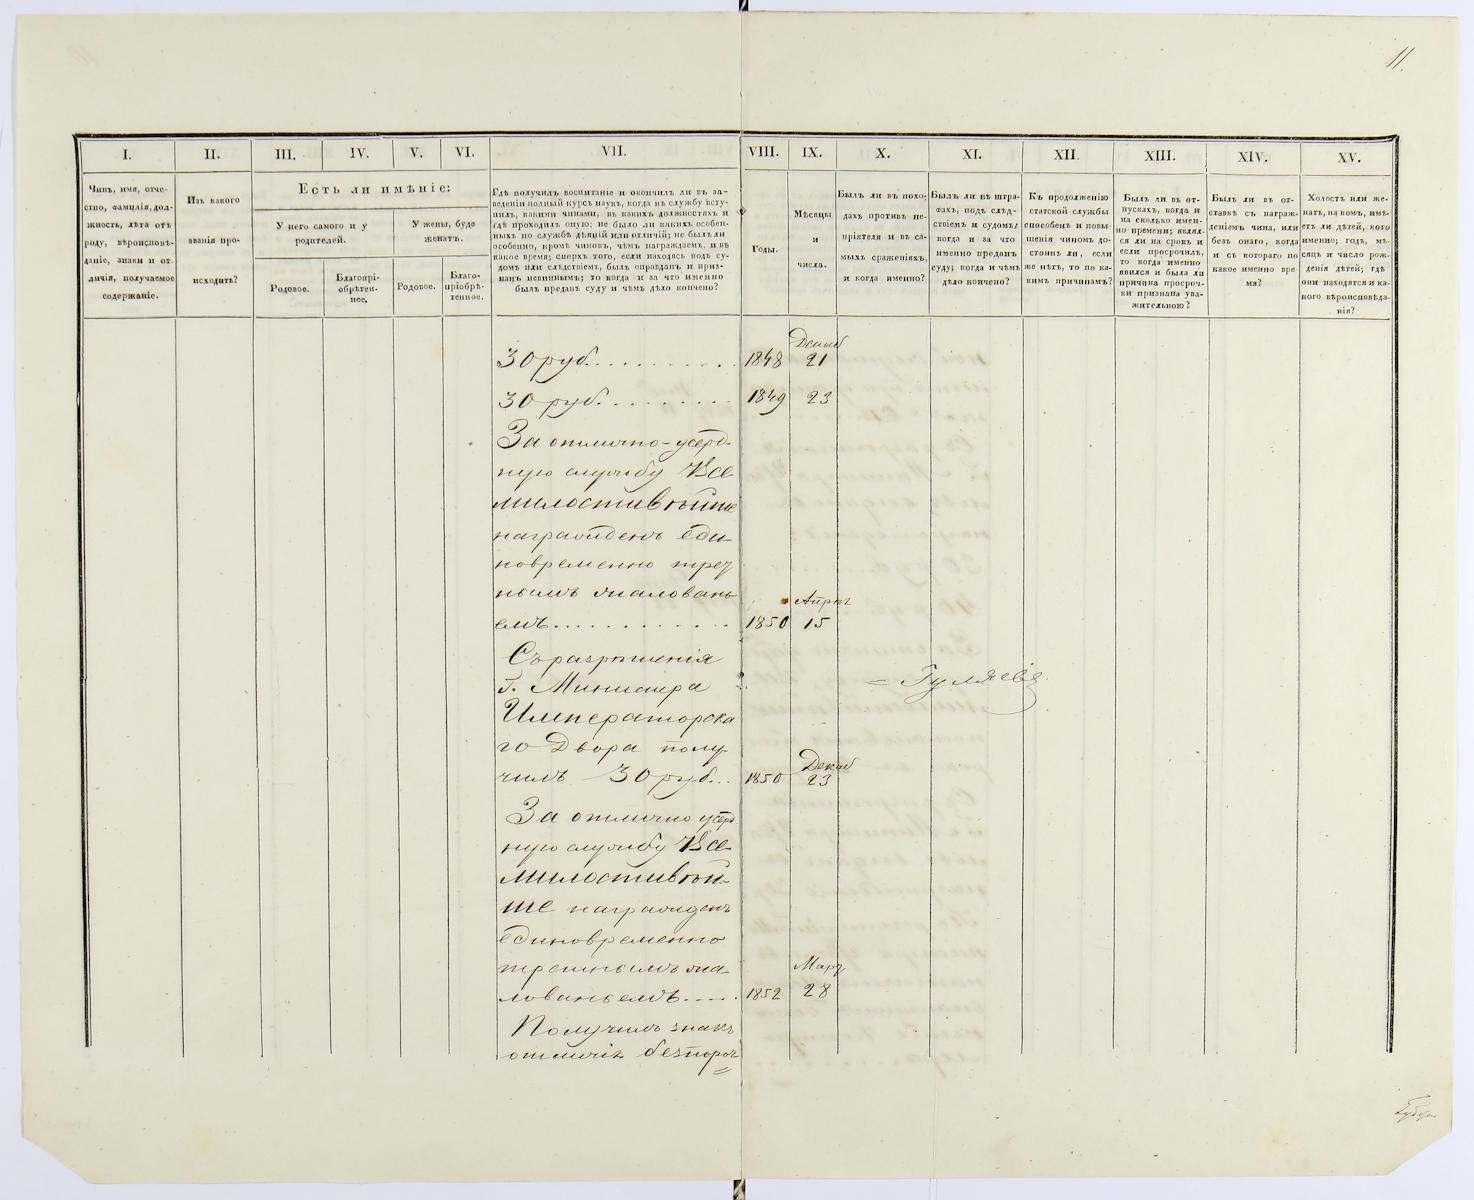 11.
I. II. III. IV. V. VI. VII. VIII. IX. X. XI. XII. XIII. XIV. XV.
Чинъ, имя, отче-
ство, фамилія, дол-
жность, лѣта отъ
роду, вѣроисповѣ-
даніе, знаки и от-
личія, получаемое
содержаніе.
Изъ какого
званія про-
исходитъ?
Есть ли имѣніе:
У него самого и у
родителей.
У жены, буде
женатъ.
Родовое.
Благопрі-
обрѣтен-
ное.
Родовое.
Благо-
пріобрѣ-
тенное.
Гдѣ получилъ воспитаніе и окончилъ ли въ за-
веденіи полный курсъ наукъ, когда въ службу всту-
пилъ, какими чинами, въ какихъ должностяхъ и
гдѣ проходилъ оную; не было ли какихъ особен-
ныхъ по службѣ дѣяній или отличій; не былъ ли
особенно, кромѣ чиновъ, чѣмъ награждаемъ, и въ
какое время; сверхъ того, если находясь подъ су-
домъ или слѣдствіемъ, былъ оправданъ и приз-
нанъ невиннымъ; то когда и за что именно
былъ преданъ суду и чѣмъ дѣло кончено?
Годы.
Мѣсяцы
и
числа.
Былъ ли въ похо-
дахъ противъ не-
пріятеля и въ са-
мыхъ сраженіяхъ,
и когда именно?
Былъ ли въ штра-
фахъ, подъ слѣд-
ствіемъ и судомъ;
когда и за что
именно преданъ
суду; когда и чѣмъ
дѣло кончено?
Къ продолженію
статской службы
способенъ и повы-
шенія чиномъ до-
стоинъ ли, если
же нѣтъ, то по ка-
кимъ причинамъ?
Былъ ли въ от-
пускахъ, когда и
на сколько имен-
но времени; являл-
ся ли на срокъ и
если просрочилъ,
то когда именно
явился и была ли
причина просроч-
ки признана ува-
жительною?
Былъ ли въ от-
ставкѣ съ награж-
деніемъ чина, или
безъ онаго, когда
и съ котораго по
какое именно вре
мя?
Холостъ или же-
натъ, на комъ, имѣ-
етъ ли дѣтей, кого
именно; годъ, мѣ-
сяцъ и число рож-
денія дѣтей; гдѣ
они находятся и ка-
кого вѣроисповѣда-
нія?
Декаб
30 руб. . . . . . . . . . 1848 21
30 руб. . . . . . . . . 1849 23
За отлично-усерд-
ную службу Все
милостивѣйше
награжденъ еди
новременно трет
нымъ жаловань
Апрѣл
емъ . . . . . . . . . . . 1850 15
Съ разрѣшенія
г. Министра
Императорска
го Двора полу-
Декаб
чилъ 30 руб... 1850 23
= Гуляевъ
За отлично усерд
ную службу Все
милостивѣй-
ше награжденъ
единовременно
третнымъ жа
Мар.
лованьемъ. . . . . 1852 28
Получилъ знакъ
отличія безпороч
=